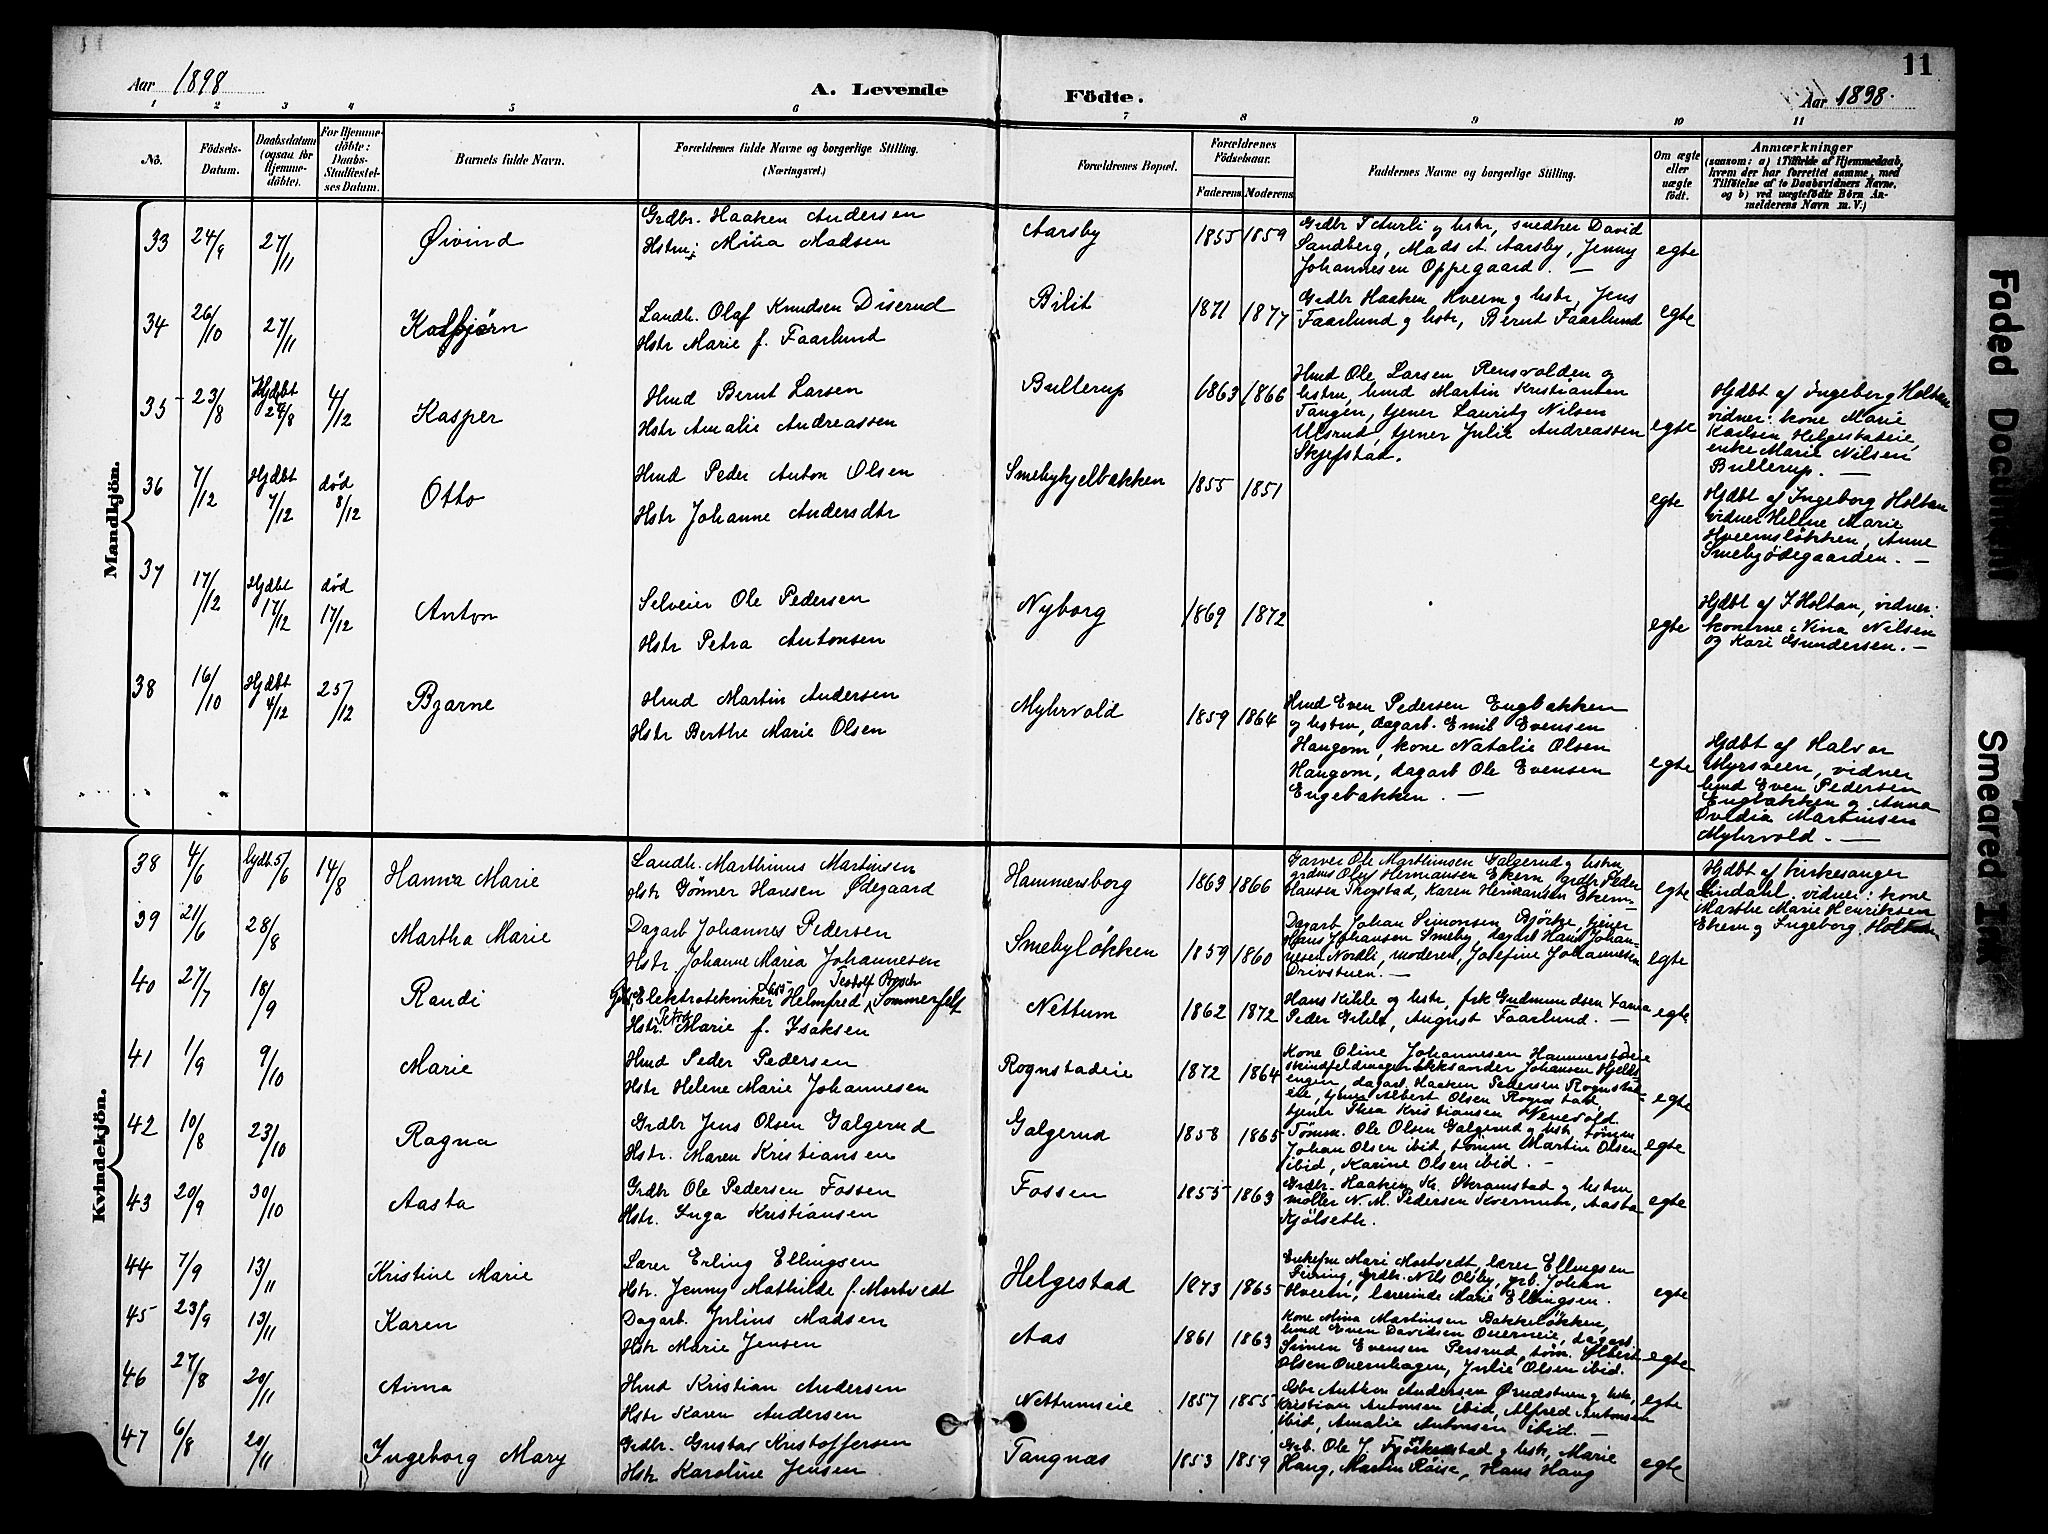 11
Aar 1898
A. Levende
Födte.
Aar 1898.
1 2 3 4 5 6 7 8 9 10 11
No.
Födsels-
Datum.
Daabsdatum
(ogsaa for
Hjemme-
döbte).
For Hjemme-
döbte:
Daabs-
Stadfæstel-
ses Datum.
Barnets fulde Navn.
Forældrenes fulde Navne og borgerlige Stilling.
(Næringsvei.)
Forældrenes Bopæl.
Forældrenes
Födselsaar.
Faderens. Moderens.
Faddernes Navne og borgerlige Stilling.
Om ægte
eller
uægte
födt.
Anmærkninger
(saasom: a) i Tilfælde af Hjemmedaab,
hvem der har forrettet samme, med
Tilföielse af to Daabsvidners Navne,
og b) ved uægtefödte Börn An-
melderens Navn m. V.)
Mandkjön.
33 24/9 27/11 Øivind
Grdbr. Haaken Andersen
Hstru Mina Madsen
Aarsby 1855 1859
Grdbr. og hstr, snedker David
Sandberg, Mads A. Aarsby, Jenny
Johannesen Oppegaard. —
egte
34 26/10 27/11 Kolbjørn
Landh. Olaf Knudsen Diserud
Hstr Marie f. Faarlund
Bilit 1871 1877
Grdbr Haaken Kveem og hstr, Jens
Faarlund og hstr, Bernt Faarlund
egte
35 23/8 Hjdbt 24/8 4/12 Kasper
Hmd Bernt Larsen
Hstr Amalie Andreassen
Bullerup 1863 1866
Hmd Ole Larsen Rensvolden og
hstru, hmd Martin Kristiansen
Tangen, tjener Lauritz Nilsen
Ulsrud, tjener Julie Andreassen
Skjefstad.
egte
Hjdbt af Ingeborg Holtan
vidner: kone Marie
Karlsen Helgestadeie,
enke Marie Nilsen
Bullerup. —
36 7/12 Hjdbt 7/12 død 8/12 Otto
Hmd Peder Anton Olsen
Hstr Johanne Andersdtr
Smebykjelbakken 1855 1851
egte
Hjdbt af Ingeborg Holtan
vidner Hellne Marie
Hveemsløkken, Anne
Smebyødegaarden. —
37 17/12 Hjdbt 17/12 død 17/12 Anton
Selveier Ole Pedersen
Hstr Petra Antonsen
Nyborg 1869 1872
egte
Hjdbt af I Holtan, vidner:
konerne Nina Nilsen
og Kari Gundersen. —
38 16/10 Hjdbt 4/12 25/12 Bjarne
Hmd Martin Andersen
Hstr Berthe Marie Olsen
Myhrvold 1859 1864
Hmd Even Pedersen Engbakken
og hstru, dagarb. Emil Evensen
Haugom, kone Natalie Olsen
Haugom, dagarb Ole Evensen
Engebakken. —
egte
Hjdbt af Halvor
Myrsveen, vidner
hmd Even Pedersen
Engbakken og Anna
Ovidia Martinsen
Myhrvold. —
Kvindekjön.
38 4/6 hjdbt. 5/6 14/8 Hanna Marie
Landh. Marthinus Martinsen
Hstr Gønner Hansen Ødegaard
Hammersborg 1863 1866
Garver Ole Marthinsen Galgerud og hstru
Hermansen Ekern, grdbr Peder
Hansen Thogstad, Karen Hermansen Ekern—
egte
Hjdbt af kirkesanger
Lindahl, vidner: kone
Marthe Marie Henriksen
Ekern og Ingeborg Holtan
39 21/6 28/8 Martha Marie
Dagarb Johannes Pedersen
Hstr. Johanne Maria Johannesen
Smebyløkken 1859 1860
Dagarb Johan Simonsen Bjørke, tjener
Hans Johansen Smeby, dagarb Hans Johan-
nesen Nordli, moderen, Josefine Johannesen
Drivstuen. —
egte
40 27/7 18/9 Randi
Elektrotekniker Helmfred Teodolf Rosch Sommerfelt
Hstr. Petra Marie f. Isaksen
Nettum 1862 1872
Hans Kihle og hstr, frk Gudmundsen
Peder Gihle, August Faarlund. —
egte
41 1/9 9/10 Marie
Hmd Peder Pedersen
Hstr Helene Marie Johannesen
Rognstadeie 1872 1864
Kone Oline Johannesen Hammerstadeie
skindfeldmager Aleksander Johansen
engen, dagarb. Haaken Pedersen Rognstad-
eie, tjener Albert Olsen Rognstad
tjener Thea Kristiansen Nenevold.
egte
42 10/8 23/10 Ragna
Grdbr Jens Olsen Galgerud
Hstr. Maren Kristiansen
Galgerud 1858 1865
Tømm. Ole Olsen Galgerud og hstr, tømm
Johan Olsen ibid, tømm Martin Olsen
ibid, Karine Olsen ibid. —
egte
43 20/9 30/10 Aasta
Grdbr Ole Pedersen Fossen
Hstr. Inga Kristiansen
Fossen 1855 1863
Grdbr. Haaken Kr. Skramstad og hstru
møller N. M. Pedersen Kvernum, Aasta
Kjølseth.
egte
44 7/9 13/11 Kristine Marie
Lærer Erling Ellingsen
Hstr. Jenny Mathilde f. Mortvedt
Helgestad 1873 1865
Enkefru Mari Mortvedt, lærer Ellingsen
grdbr. Nils Olsby, grb. Johan
Hveem, lærerinde Marie Ellingsen.
egte
45 23/9 13/11 Karen
Dagarb. Julius Madsen
Hstr Marie Jensen
Aas 1861 1863
Kone Mina Martinsen Bakkeløkken,
hmd Even Davidsen dagarb
Simen Evensen Persrud, tøm. Albert
Olsen Ouernhagen, Julie Olsen ibid.
egte
46 27/8 20/11 Anna
Hmd Kristian Andersen
Hstr Karen Andersen
Nettumseie 1857 1855
Gbr Anthon Andersen og hstr,
Kristian Antonsen ibid, Alfred Antonsen
ibid, Amalie Antonsen ibid —
egte
47 6/8 20/11 Ingeborg Mary
Grdbr. Gustav Kristoffersen
Hstr Karoline Jensen
Tangnæs 1853 1859
Grb. Ole J. og hstr, Marie
Haug, Martin Røise, Hans Haug
egte
Faded Document
Smeared Ink